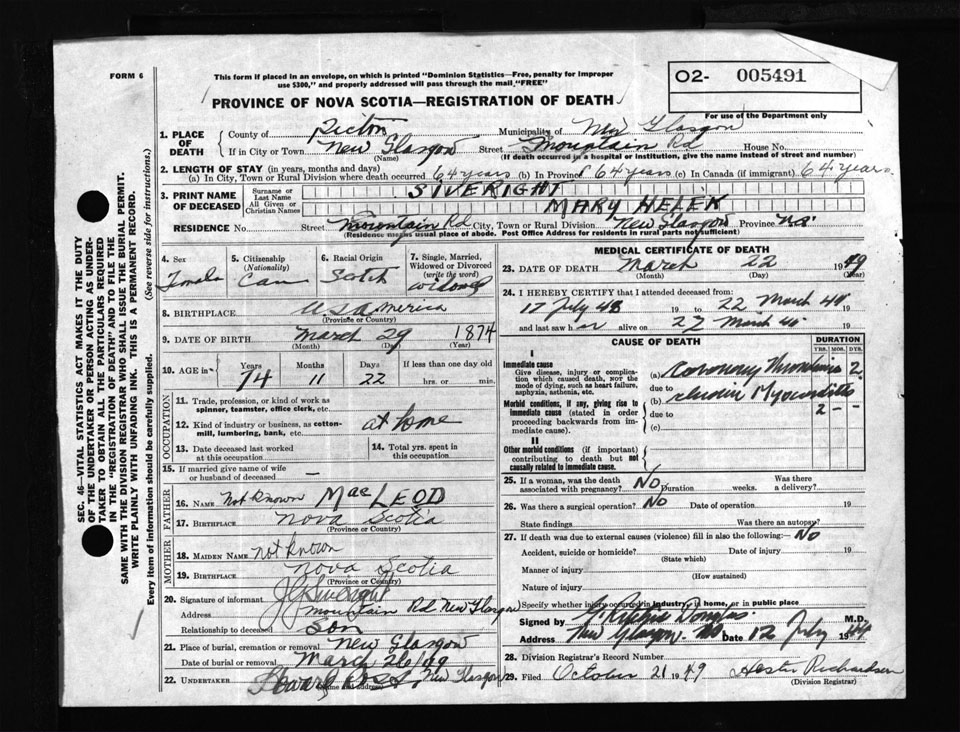 FORM 6
This form if placed in an envelope, on which is printed "Dominion Statistics—Free, penalty for improper
use $300," and properly addressed will pass through the mail "FREE"
PROVINCE OF NOVA SCOTIA—REGISTRATION OF DEATH
O2- 005491
For use of the Department only
1. PLACE OF DEATH County of Pictou Municipality of New Glasgow
If in City or Town New Glasgow (Name) Street Mountain Rd House No.
(If death occurred in a hospital or institution, give the name instead of street and number)
2. LENGTH OF STAY (in years, months and days)
(a) In City, Town or Rural Division where death occurred 64 years (b) In Province 64 years (c) In Canada (if immigrant) 64 years.
3. PRINT NAME OF DECEASED Surname or Last Name SIVERIGHT
All Given or Christian Names MARY HELEN
RESIDENCE No. Street Mountain Rd City, Town or Rural Division New Glasgow Province N.S.
(Residence means usual place of abode. Post Office Address for residents in rural parts not sufficient)
4. Sex Female
5. Citizenship (Nationality) Can
6. Racial Origin Scotch
7. Single, Married, Widowed or Divorced (write the word) widowed
8. BIRTHPLACE U S America
(Province or Country)
9. DATE OF BIRTH March 29 1874
(Month) (Day) (Year)
10. AGE in Years 74 Months 11 Days 22 If less than one day old hrs. or min.
OCCUPATION
11. Trade, profession, or kind of work as spinner, teamster, office clerk, etc.
12. Kind of industry or business, as cotton-mill, lumbering, bank, etc. at home
13. Date deceased last worked at this occupation
14. Total yrs. spent in this occupation
15. If married give name of wife or husband —
FATHER
16. Name Not Known MacLEOD
17. Birthplace Nova Scotia
(Province or Country)
MOTHER
18. Maiden Name Not Known
19. Birthplace Nova Scotia
(Province or Country)
20. Signature of informant
Address Mountain Rd New Glasgow
Relationship to deceased Son
21. Place of burial, cremation or removal New Glasgow
Date of burial or removal March 26/49
22. UNDERTAKER New Glasgow
(Name and address)
MEDICAL CERTIFICATE OF DEATH
23. DATE OF DEATH March 22 1949
(Month) (Day) (Year)
24. I HEREBY CERTIFY that I attended deceased from:
17 July 48 19 to 22 March 19
and last saw h er alive on March 19
CAUSE OF DEATH
DURATION
YRS. MOS. DYS.
I
Immediate cause
Give disease, injury or complication which caused death, not the mode of dying, such as heart failure, asphyxia, asthenia, etc.
(a) Coronary Thrombosis 2
Morbid conditions, if any, giving rise to immediate cause (stated in order proceeding backwards from immediate cause).
due to
(b) chronic Myocarditis
due to 2 -
(c)
II
Other morbid conditions (if important) contributing to death but not causally related to immediate cause.
25. If a woman, was the death associated with pregnancy? No Duration weeks. Was there a delivery?
26. Was there a surgical operation? No Date of operation 19
State findings Was there an autopsy?
27. If death was due to external causes (violence) fill in also the following:— No
Accident, suicide or homicide? Date of injury 19
(State which)
Manner of injury
(How sustained)
Nature of injury
Specify whether injury occurred in industry, in home, or in public place
Signed by Douglas M.D.
Address New Glasgow NS Date 12 July 19
28. Division Registrar's Record Number
29. Filed October 21 1949 Hester Richardson
(Division Registrar)
SEC. 46—VITAL STATISTICS ACT MAKES IT THE DUTY
OF THE UNDERTAKER OR PERSON ACTING AS UNDER-
TAKER TO OBTAIN ALL THE PARTICULARS REQUIRED
IN THE "REGISTRATION OF DEATH" AND TO FILE THE
SAME WITH THE DIVISION REGISTRAR WHO SHALL ISSUE THE BURIAL PERMIT.
WRITE PLAINLY WITH UNFADING INK. THIS IS A PERMANENT RECORD.
Every item of information should be carefully supplied. (See reverse side for instructions.)